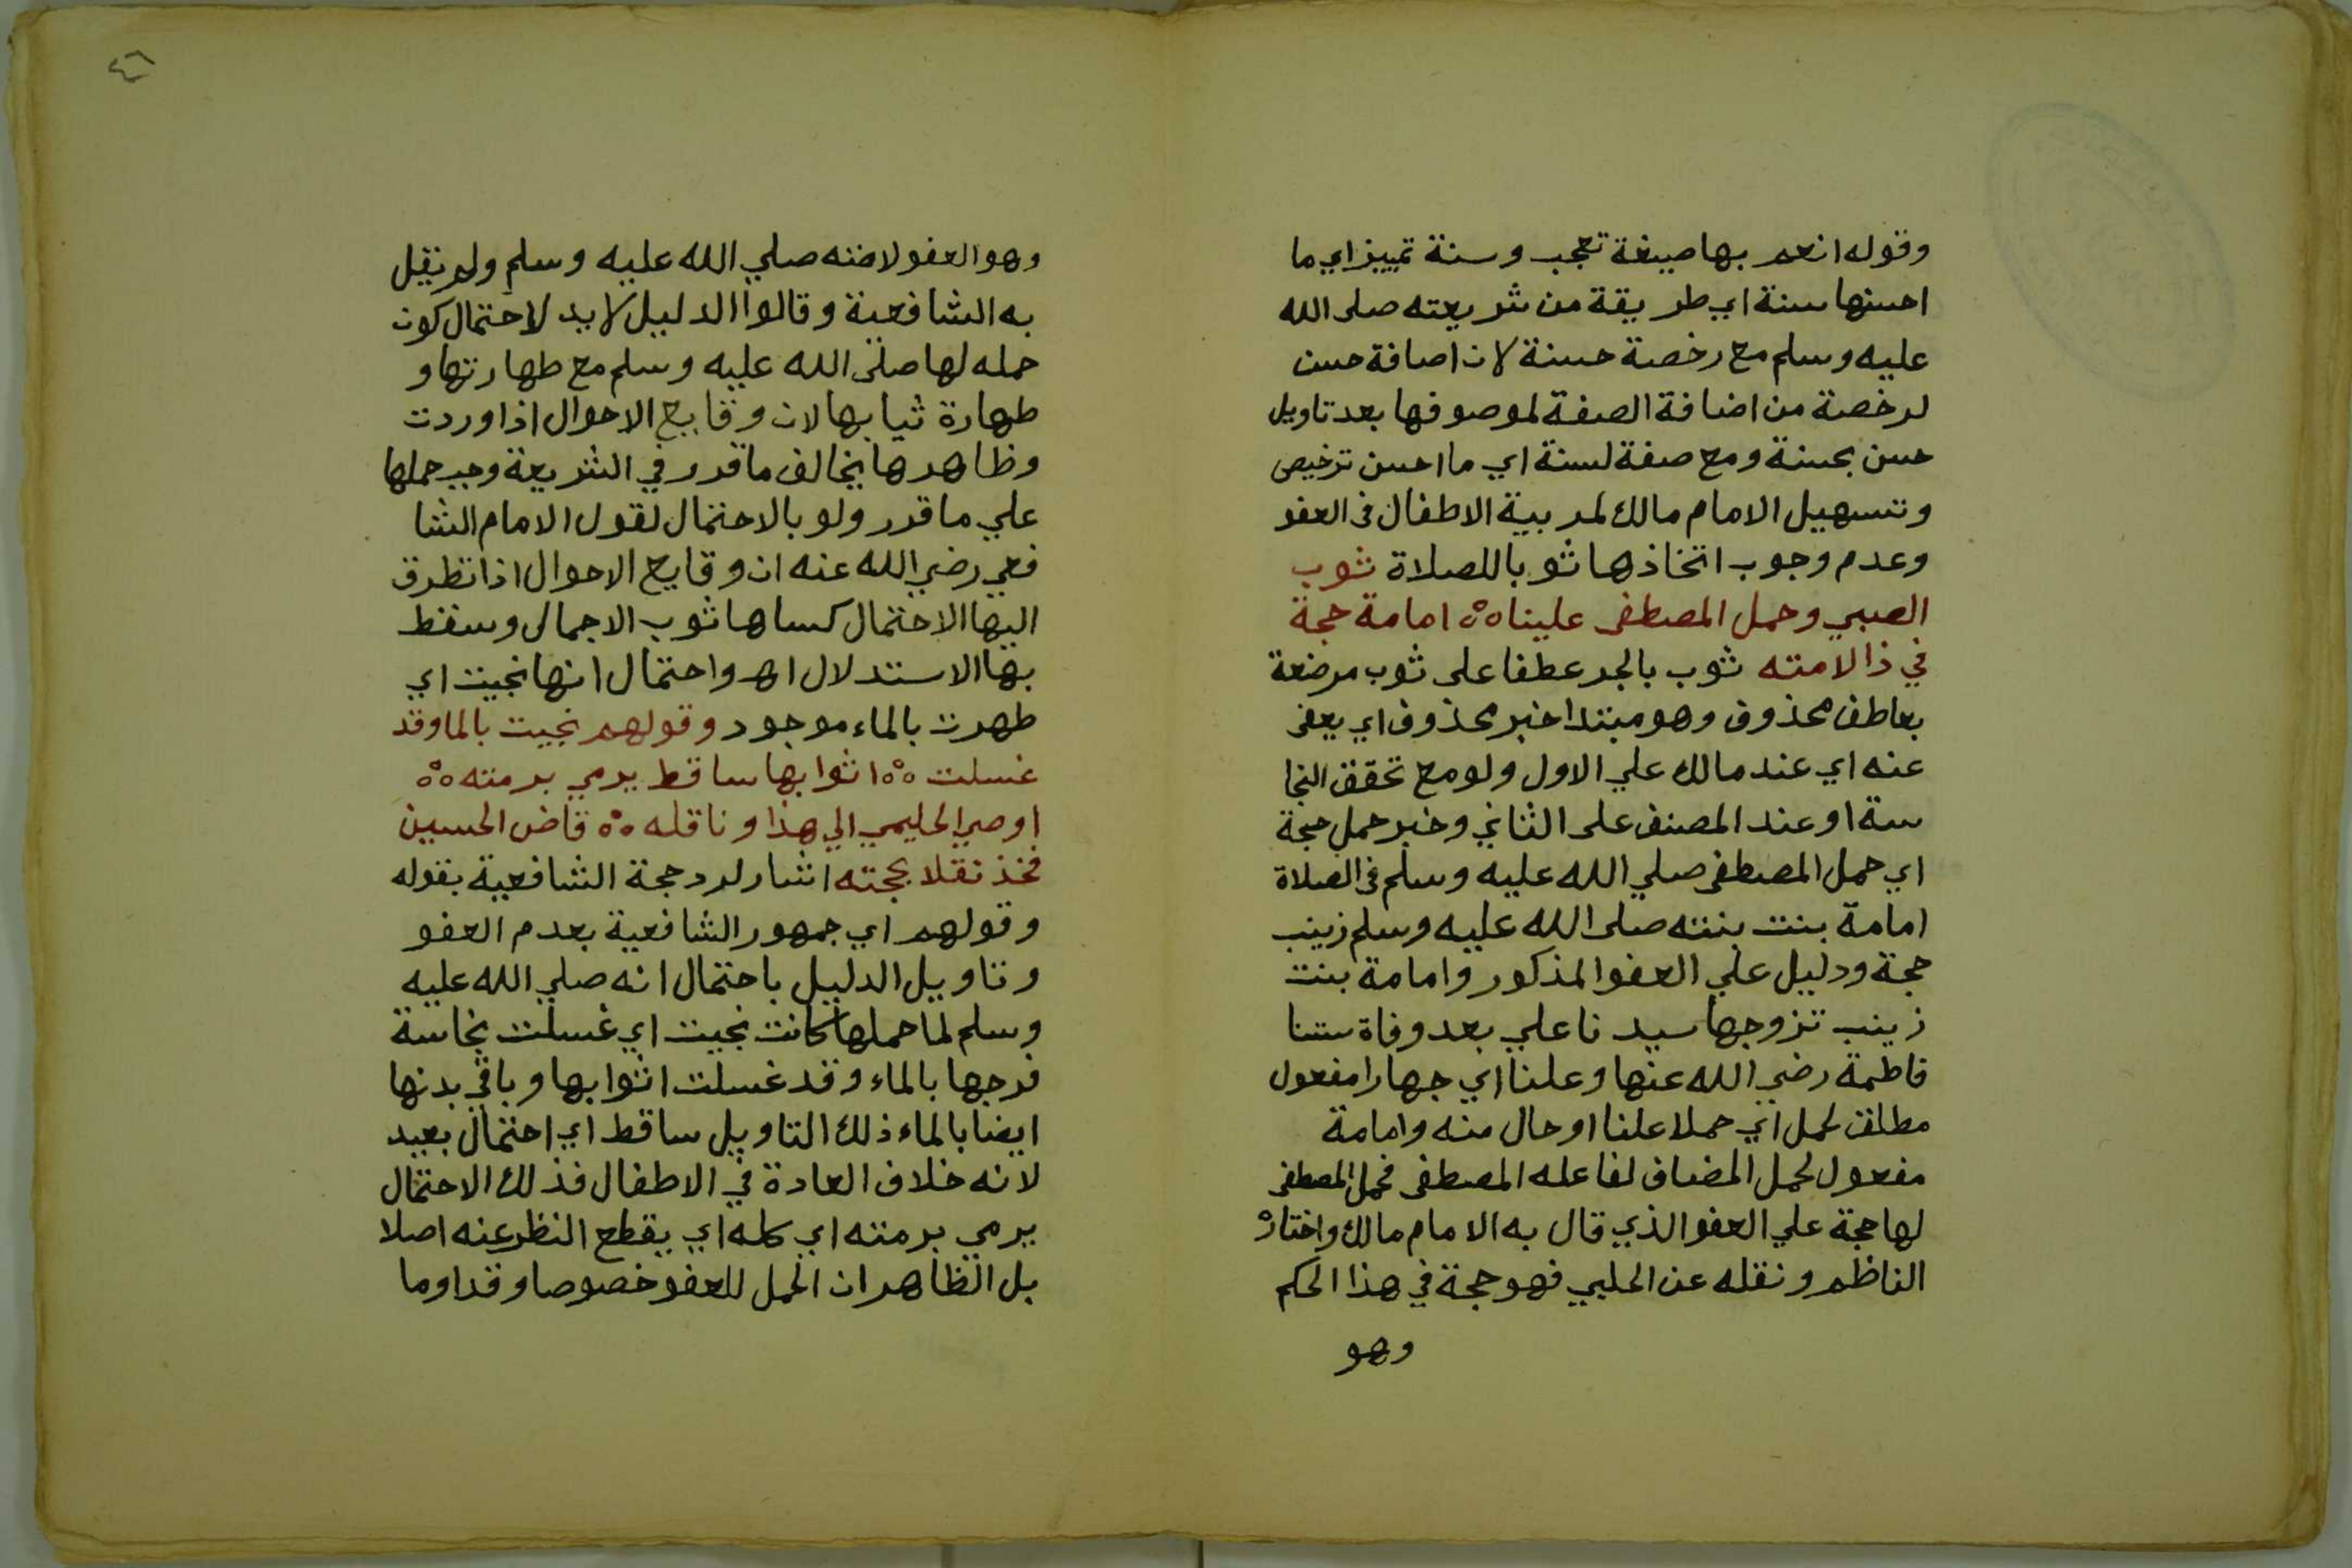 وقوله انعم بها صيغة تعجب وسنة تمييز اي ما
احسنها سنة اي طريقة من شريعته صلى الله
عليه وسلم مع رخصة حسنة لان اضافة حسن
لرخصة من اضافة الصفة لموصوفها بعد تاويل
حسن بحسنة ومع صفة لسنة اي ما احسن ترخيص
وتسهيل الامام مالك لمربية الاطفال في العفو
وعدم وجوب اتخاذها ثوبا للصلاة ثوب
الصبي وحمل المصطفى علينا امامة حجة
في ذا لامته ثوب بالجر عطفا على ثوب مرضعة
بعاطف محذوف وهو مبتدا خبر محذوف اي يعفى
عنه اي عند مالك علي الاول ولو مع تحقق النجا
سة او عند المصنف على الثاني وخبر حمل حجة
اي حمل المصطفى صلي الله عليه وسلم في الصلاة
امامة بنت بنته صلى الله عليه وسلم زينب
حجة ودليل علي العفو المذكور وامامة بنت
زينب تزوجها سيدنا علي بعد وفاة ستنا
فاطمة رضي الله عنها وعلنا اي جهارا مفعول
مطلق لحمل اي حملا علنا او حال منه وامامة
مفعول لحمل المضاف لفاعله المصطفى فحمل المصطفى
لها حجة علي العفو الذي قال به الامام مالك واختاره
الناظم ونقله عن الحليي فهو حجة في هذا الحكم
وهو
٤٦
وهو العفو لامته صلي الله عليه وسلم ولم نقل
به الشافعية وقالوا الدليل لا يد لاحتمال كون
حمله لها صلى الله عليه وسلم مع طهارتها و
طهارة ثيابها لان وقايع الاحوال اذا وردت
وظاهرها يخالف ما قرر في الشريعة وجب حملها
علي ما قرر ولو بالاحتمال لقول الامام الشا
فعي رضي الله عنه ان وقايع الاحوال اذا تطرق
اليها الاحتمال كساها ثوب الاجمال وسقط
بها الاستدلال اه واحتمال انها نجيت اي
طهرت بالماء موجود وقولهم نجيت بالما وقد
غسلت اثوابها ساقط يرمي برمته
اوصي الحليمي الي هذا وناقله قاض الحسين
فخذ نقلا بحجته اشار لرد حجة الشافعية بقوله
وقولهم اي جمهور الشافعية بعدم العفو
وتاويل الدليل باحتمال انه صلي الله عليه
وسلم لما حملها كانت نجيت اي غسلت نجاسة
فرجها بالماء وقد غسلت اثوابها وباقي بدنها
ايضا بالماء ذلك التاويل ساقط اي احتمال بعيد
لانه خلاف العادة في الاطفال فذلك الاحتمال
يرمي برمته اي كله اي يقطع النظر عنه اصلا
بل الظاهر ان الحمل للعفو خصوصا وقد اوما